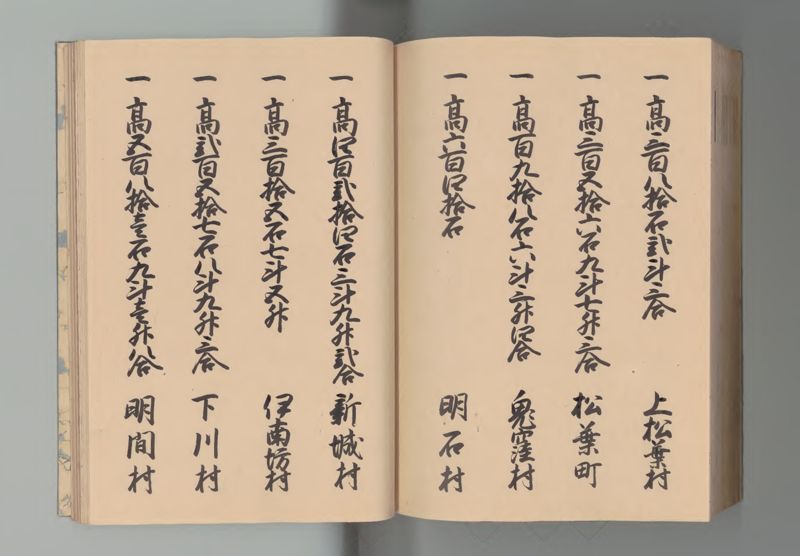 一 高三百八拾石弐斗三合 上松葉村
一 高三百五拾六石九斗七升三合 松葉町
一 高百九拾八石六斗三升四合 鬼窪村
一 高六百四拾石 明石村
一 高四百弐拾四石三斗九升弐合 新城村
一 高三百拾五石七斗五升 伊南坊村
一 高弐百五拾七石八斗九升三合 下川村
一 高五百八拾壱石九斗壱升八合 明間村